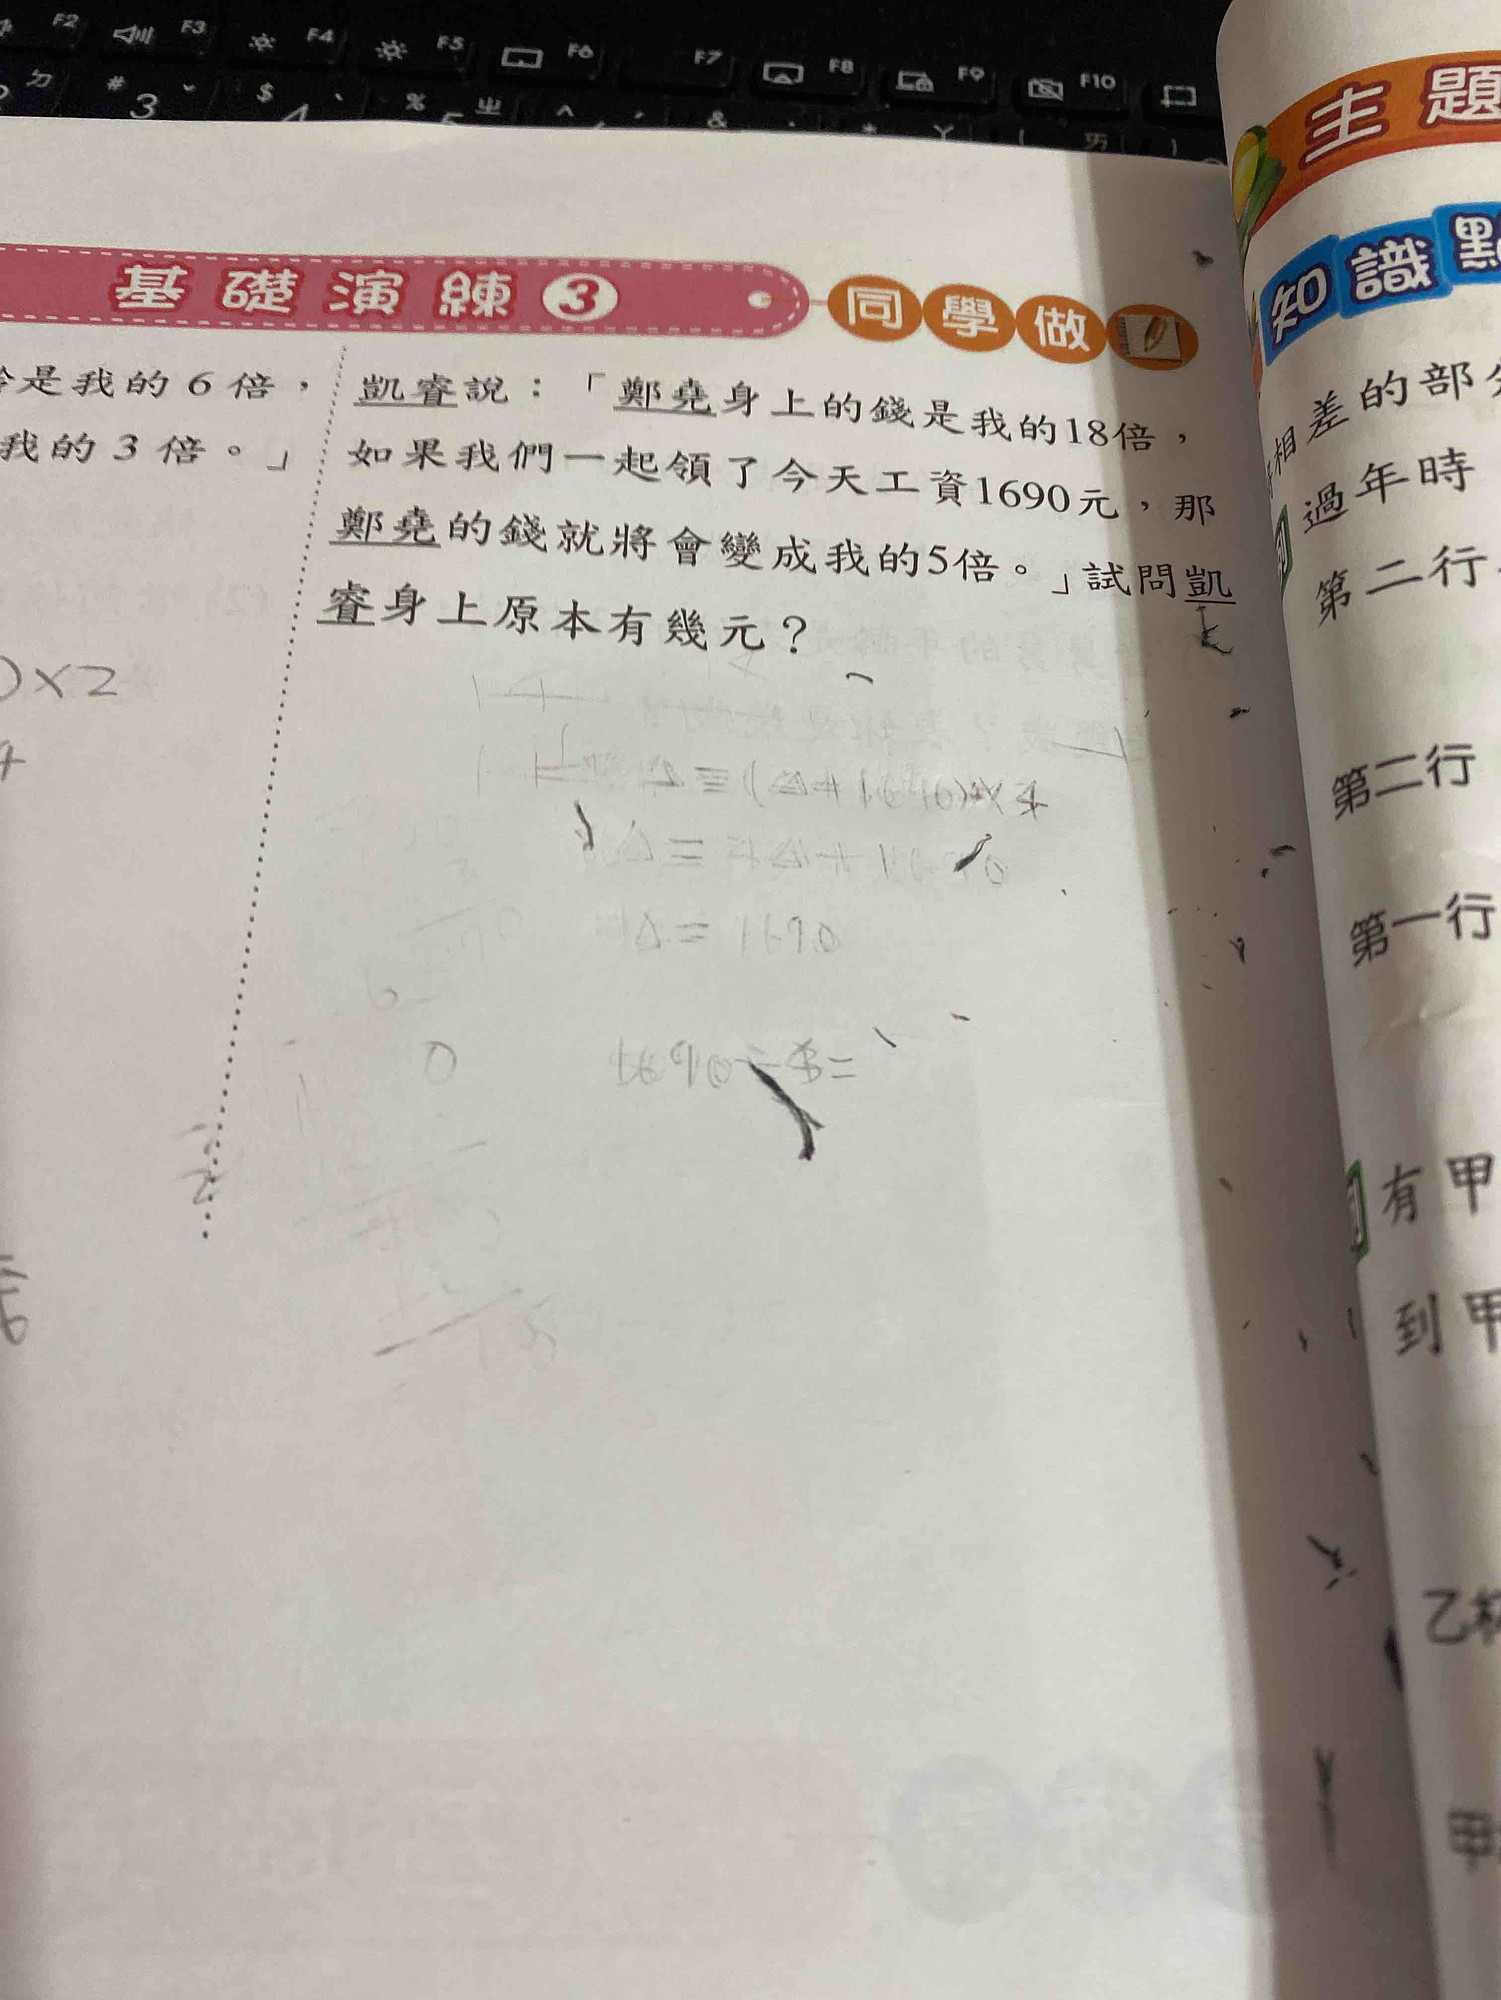 F2 F3 F4 F5 F6 F7 F8 F9 F10
ㄉ # 3 ˇ $ 4 ˋ % 5 ㄓ ^ ˊ & ˙ * ㄚ ( ㄞ )
基礎演練3
同學做
齡是我的6倍，
我的3倍。」
凱睿說：「鄭堯身上的錢是我的18倍，
如果我們一起領了今天工資1690元，那
鄭堯的錢就將會變成我的5倍。」試問凱
睿身上原本有幾元？
)×2
4
△=1690
0
1690÷8=
主題
知識點
相差的部分
過年時
第二行
第二行
第一行
有甲
到甲
乙杯
甲